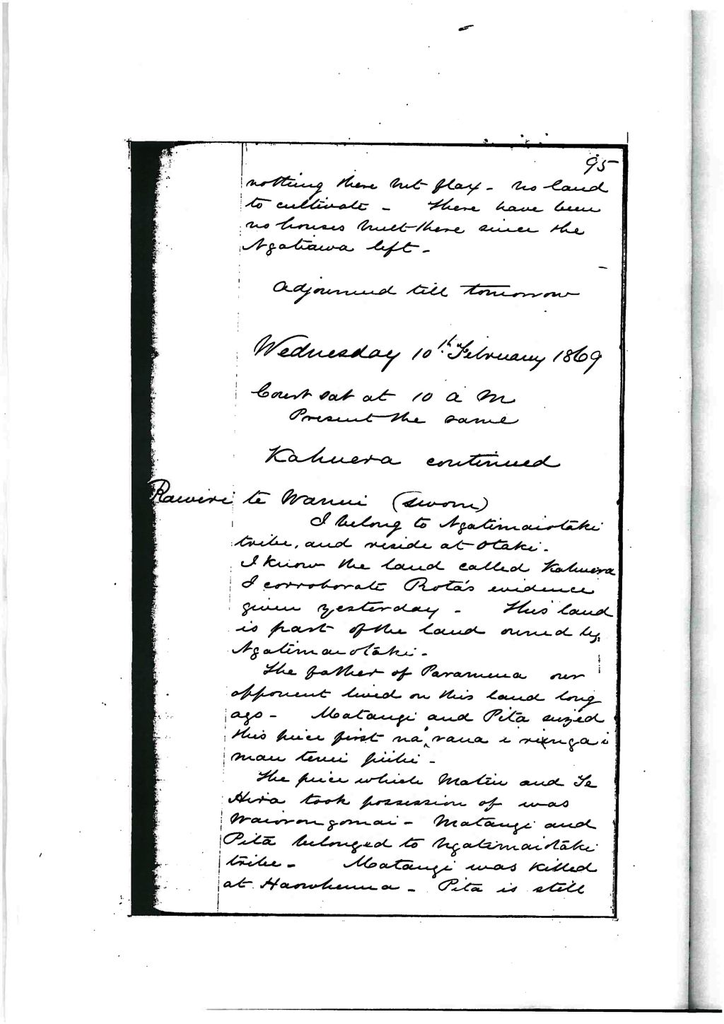 95
nothing there but flax - no land
to cultivate - There have been
no houses built there since the
Ngatiawa left -
Adjourned till tomorrow
Wednesday 10th February 1869
Court sat at 10 a m
Present the same
Kahuera continued
Rawiri te Wanui (sworn)
I belong to Ngatimaiotaki
tribe, and reside at Otaki -
I know the land called Kahuera
I corroborate Rota's evidence
given yesterday - This land
is part of the land owned by
Ngatimaiotaki -
The father of Paramena our
opponent lived on this land long
ago - Matangi and Pita seized
this piece first na raua i
mau tenei piihi -
The piece which Matiu and Te
Hira took possession of was
Waiorongomai - Matangi and
Pita belonged to Ngatimaiotaki
tribe - Matangi was killed
at Haowhenua - Pita is still